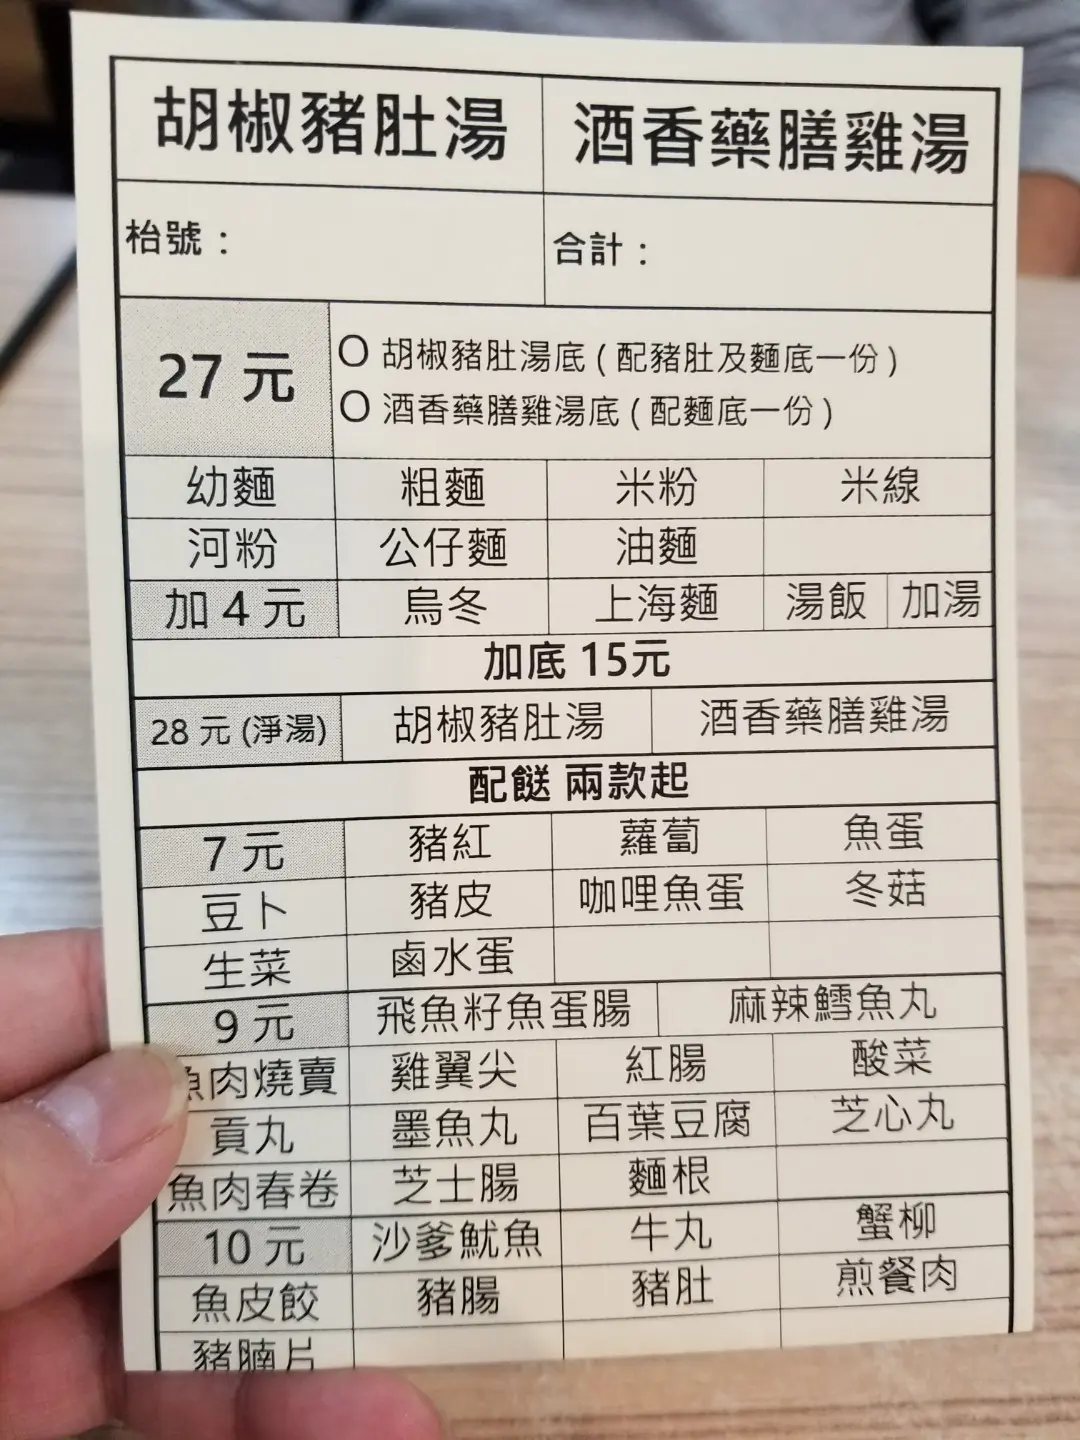 胡椒豬肚湯 酒香藥膳雞湯
枱號： 合計：
27 元
O 胡椒豬肚湯底 ( 配豬肚及麵底一份 )
O 酒香藥膳雞湯底 ( 配麵底一份 )
幼麵 粗麵 米粉 米線
河粉 公仔麵 油麵
加 4 元 烏冬 上海麵 湯飯 加湯
加底 15元
28 元 (淨湯) 胡椒豬肚湯 酒香藥膳雞湯
配餸 兩款起
7 元 豬紅 蘿蔔 魚蛋
豆卜 豬皮 咖哩魚蛋 冬菇
生菜 鹵水蛋
9 元 飛魚籽魚蛋腸 麻辣鱈魚丸
魚肉燒賣 雞翼尖 紅腸 酸菜
貢丸 墨魚丸 百葉豆腐 芝心丸
魚肉春卷 芝士腸 麵根
10 元 沙爹魷魚 牛丸 蟹柳
魚皮餃 豬腸 豬肚 煎餐肉
豬腩片